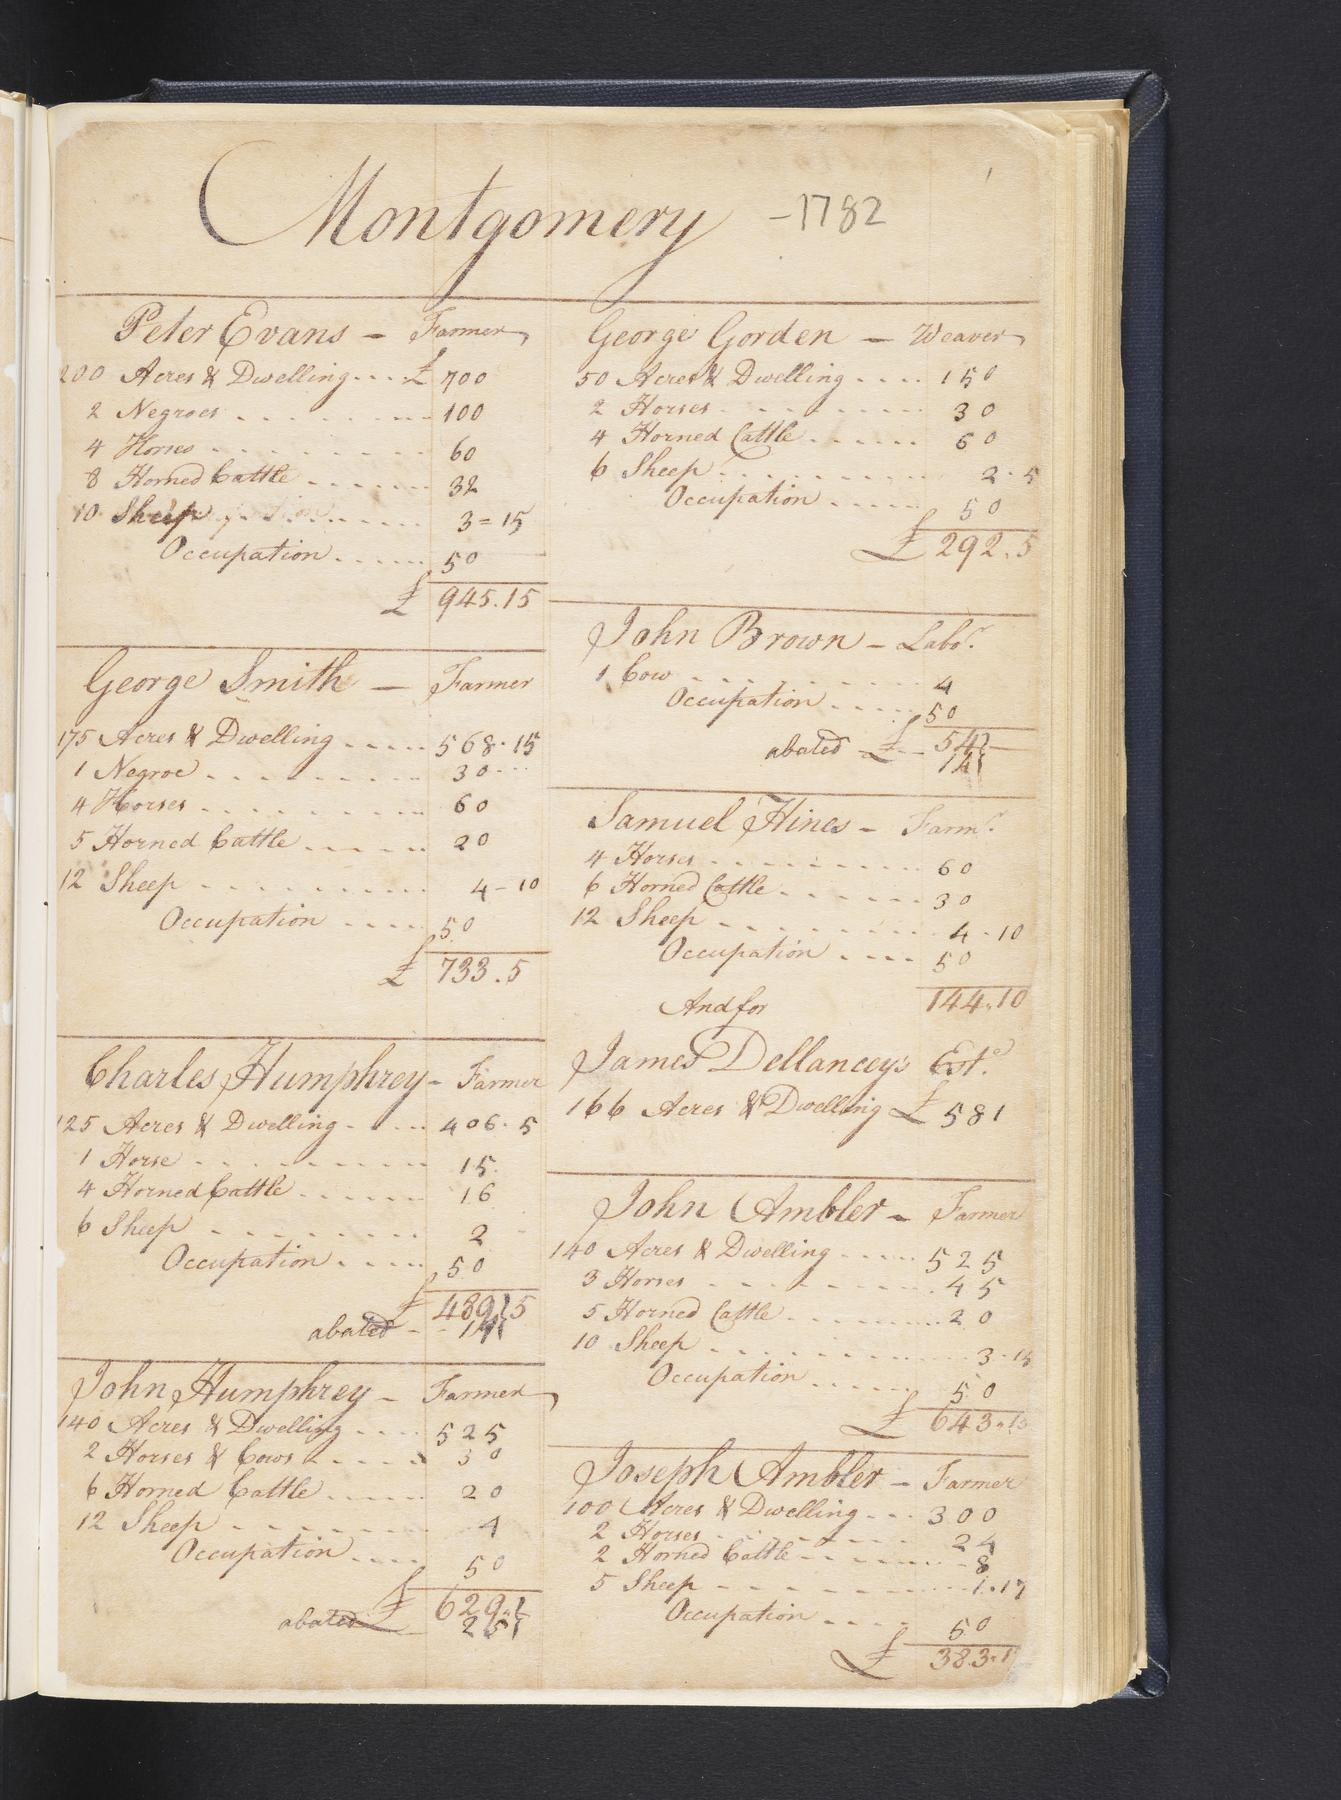 Montgomery - 1782
1
Peter Evans - Farmer
200 Acres & Dwelling £ 700
2 Negroes 100
4 Horses 60
8 Horned Cattle 32
10 Sheep 3=15
Occupation 50
£ 945.15
George Smith - Farmer
175 Acres & Dwelling 568.15
1 Negroe 30
4 Horses 60
5 Horned Cattle 20
12 Sheep 4-10
Occupation 50
£ 733.5
Charles Humphrey - Farmer
125 Acres & Dwelling 406.5
1 Horse 15
4 Horned Cattle 16
6 Sheep 2
Occupation 50
£ 489.5
abated
John Humphrey - Farmer
140 Acres & Dwelling 525
2 Horses & Cows 30
6 Horned Cattle 20
12 Sheep 4
Occupation 50
£ 629
abated
George Gorden - Weaver
50 Acres & Dwelling 150
2 Horses 30
4 Horned Cattle 60
6 Sheep 2.5
Occupation 50
£ 292.5
John Brown - Labor.
1 Cow 4
Occupation 50
abated £ 54
Samuel Hines - Farmr.
4 Horses 60
6 Horned Cattle 30
12 Sheep 4-10
Occupation 50
144.10
And for
James Dellancey's Est.
166 Acres & Dwelling £ 581
John Ambler - Farmer
140 Acres & Dwelling 525
3 Horses 45
5 Horned Cattle 20
10 Sheep 3-15
Occupation 50
£ 643.15
Joseph Ambler - Farmer
100 Acres & Dwelling 300
2 Horses 24
2 Horned Cattle 8
5 Sheep 1.17
Occupation 50
£ 383.17